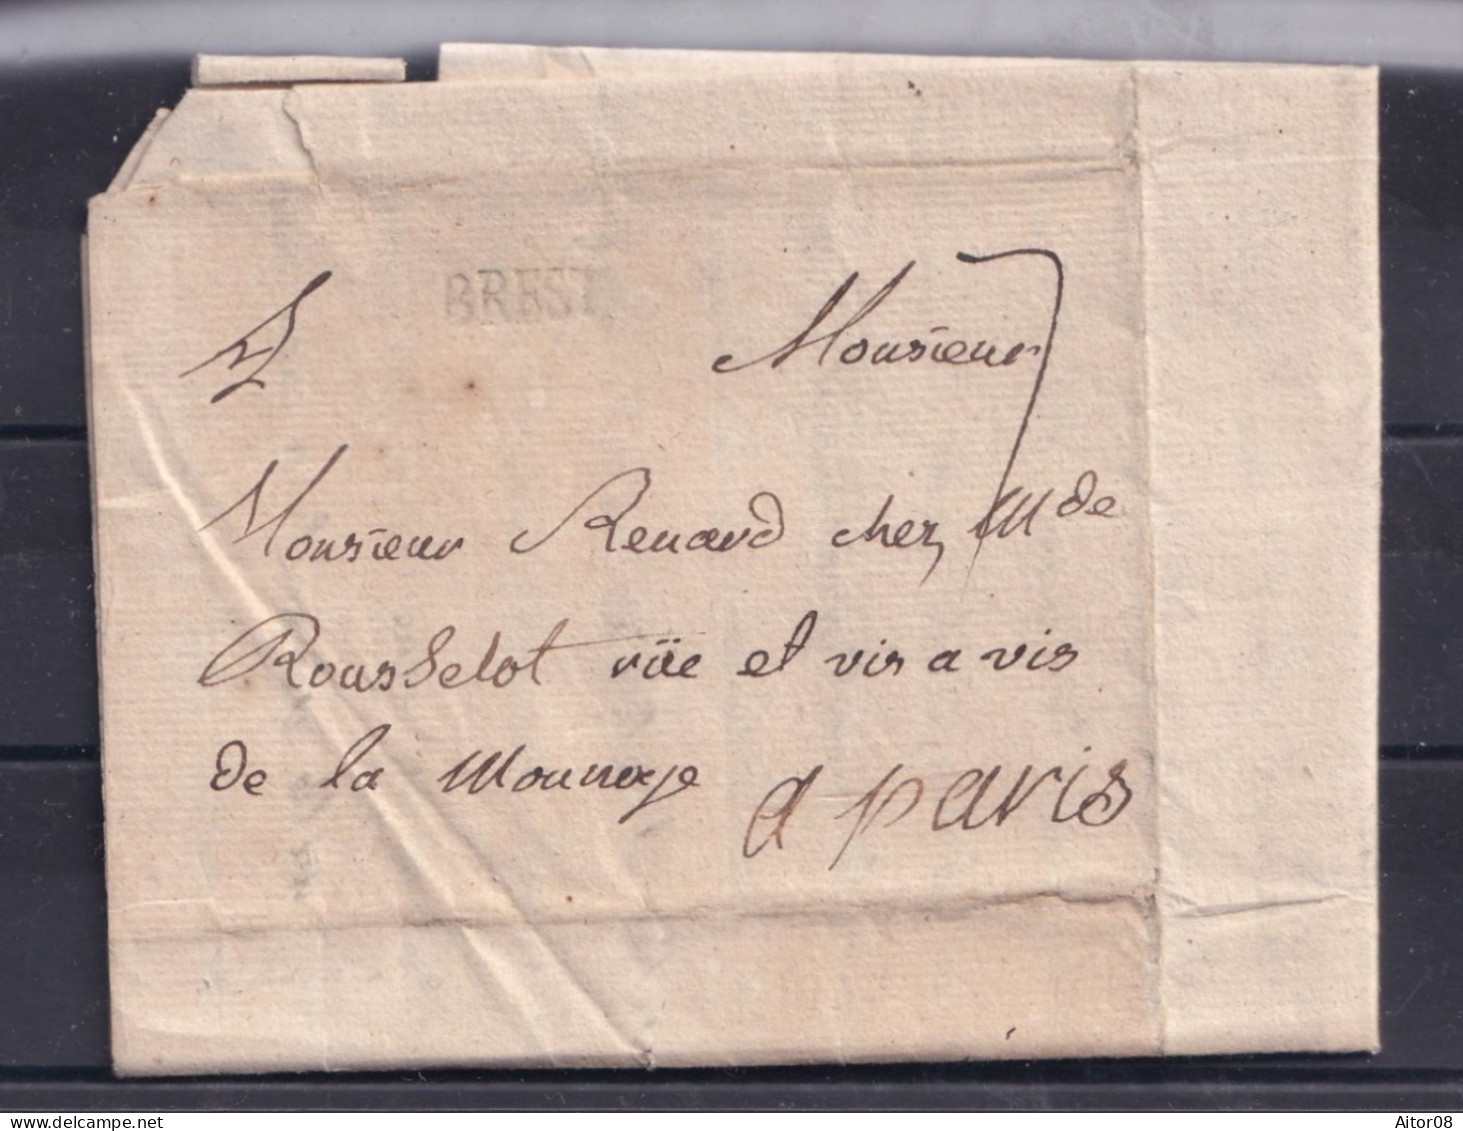 BREST
Monsieur
Monsieur Renard chez Mde
Rousselot rüe et vis a vis
de la Monnoye a paris
Aitor08